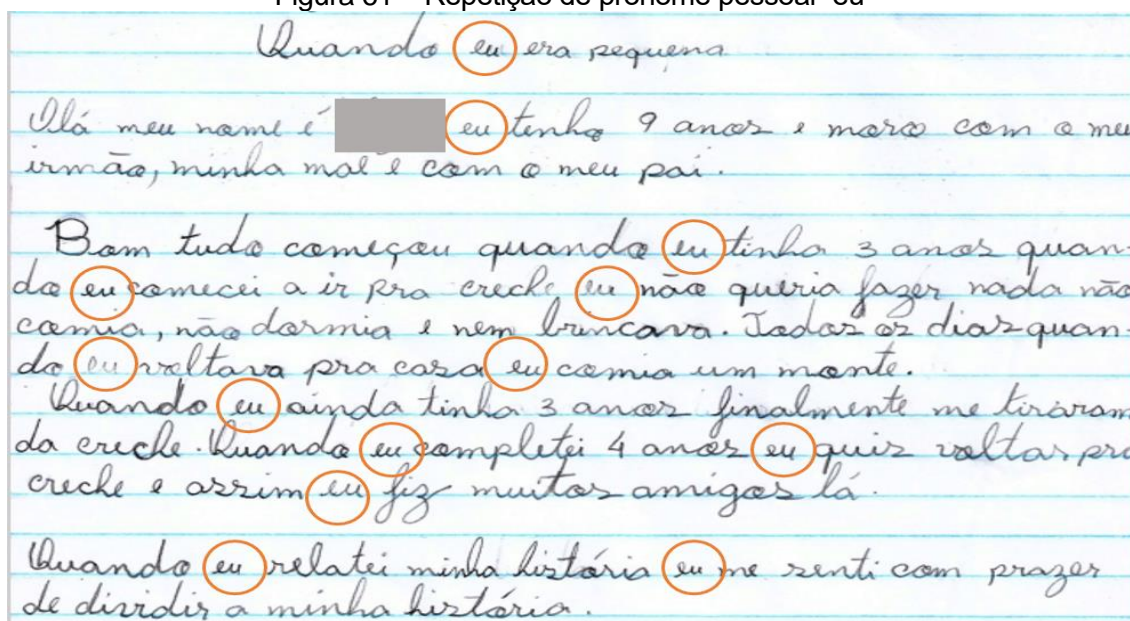 Figura 61 – Repetição do pronome pessoal "eu"
Quando eu era pequena
Olá meu nome é eu tenho 9 anos e moro com o meu
irmão, minha mãe e com o meu pai.
Bom tudo começou quando eu tinha 3 anos quan-
do eu comecei a ir pra creche eu não queria fazer nada não
comia, não dormia e nem brincava. Todos os dias quan-
do eu voltava pra casa eu comia um monte.
Quando eu ainda tinha 3 anos finalmente me tiraram
da creche. Quando eu completei 4 anos eu quis voltar pra
creche e assim eu fiz muitos amigos lá.
Quando eu relatei minha história eu me senti com prazer
de dividir a minha história.